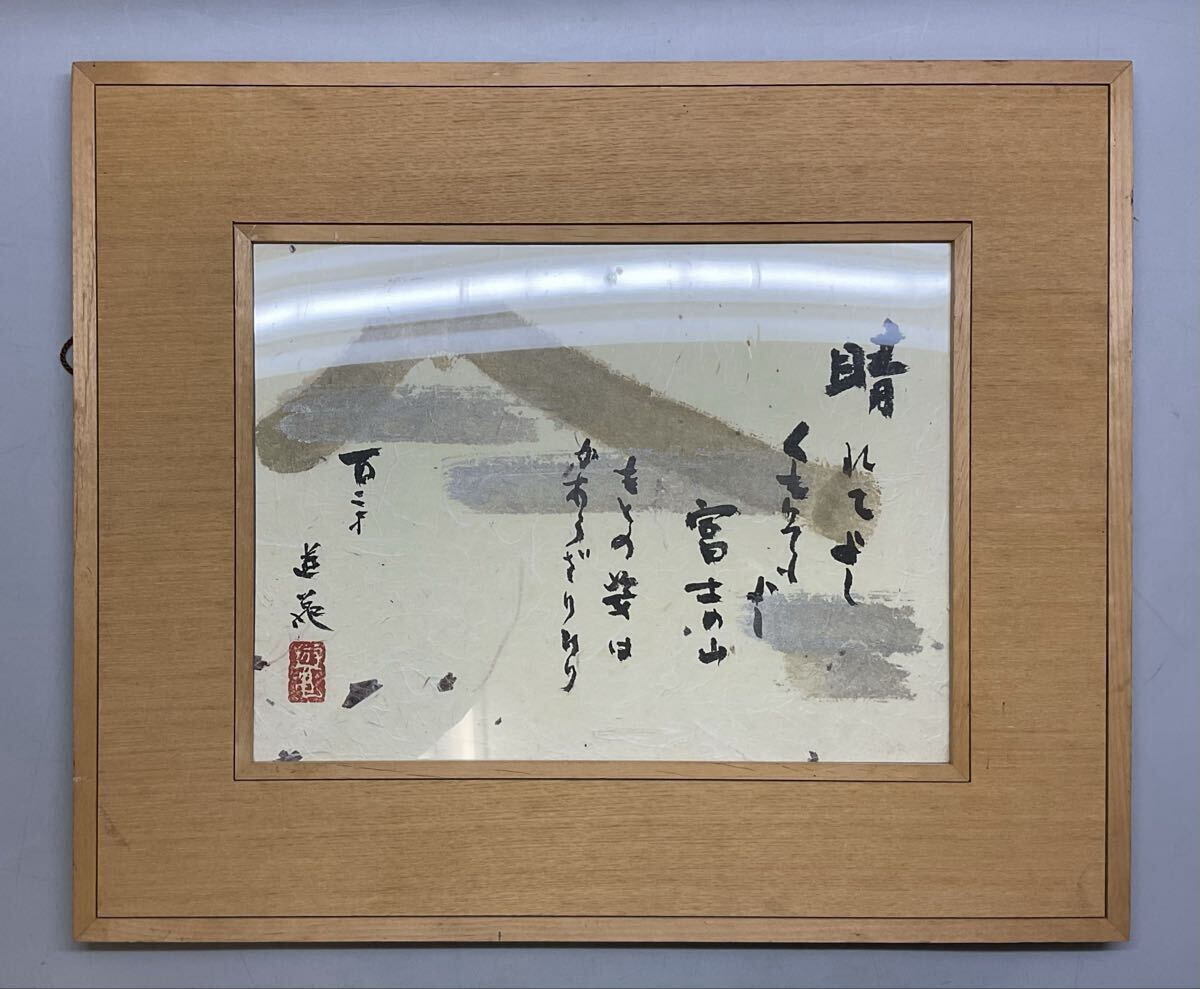 晴れてよし
くもりてもよし
富士の山
もとの姿は
かわらざりけり
百二才
遊亀